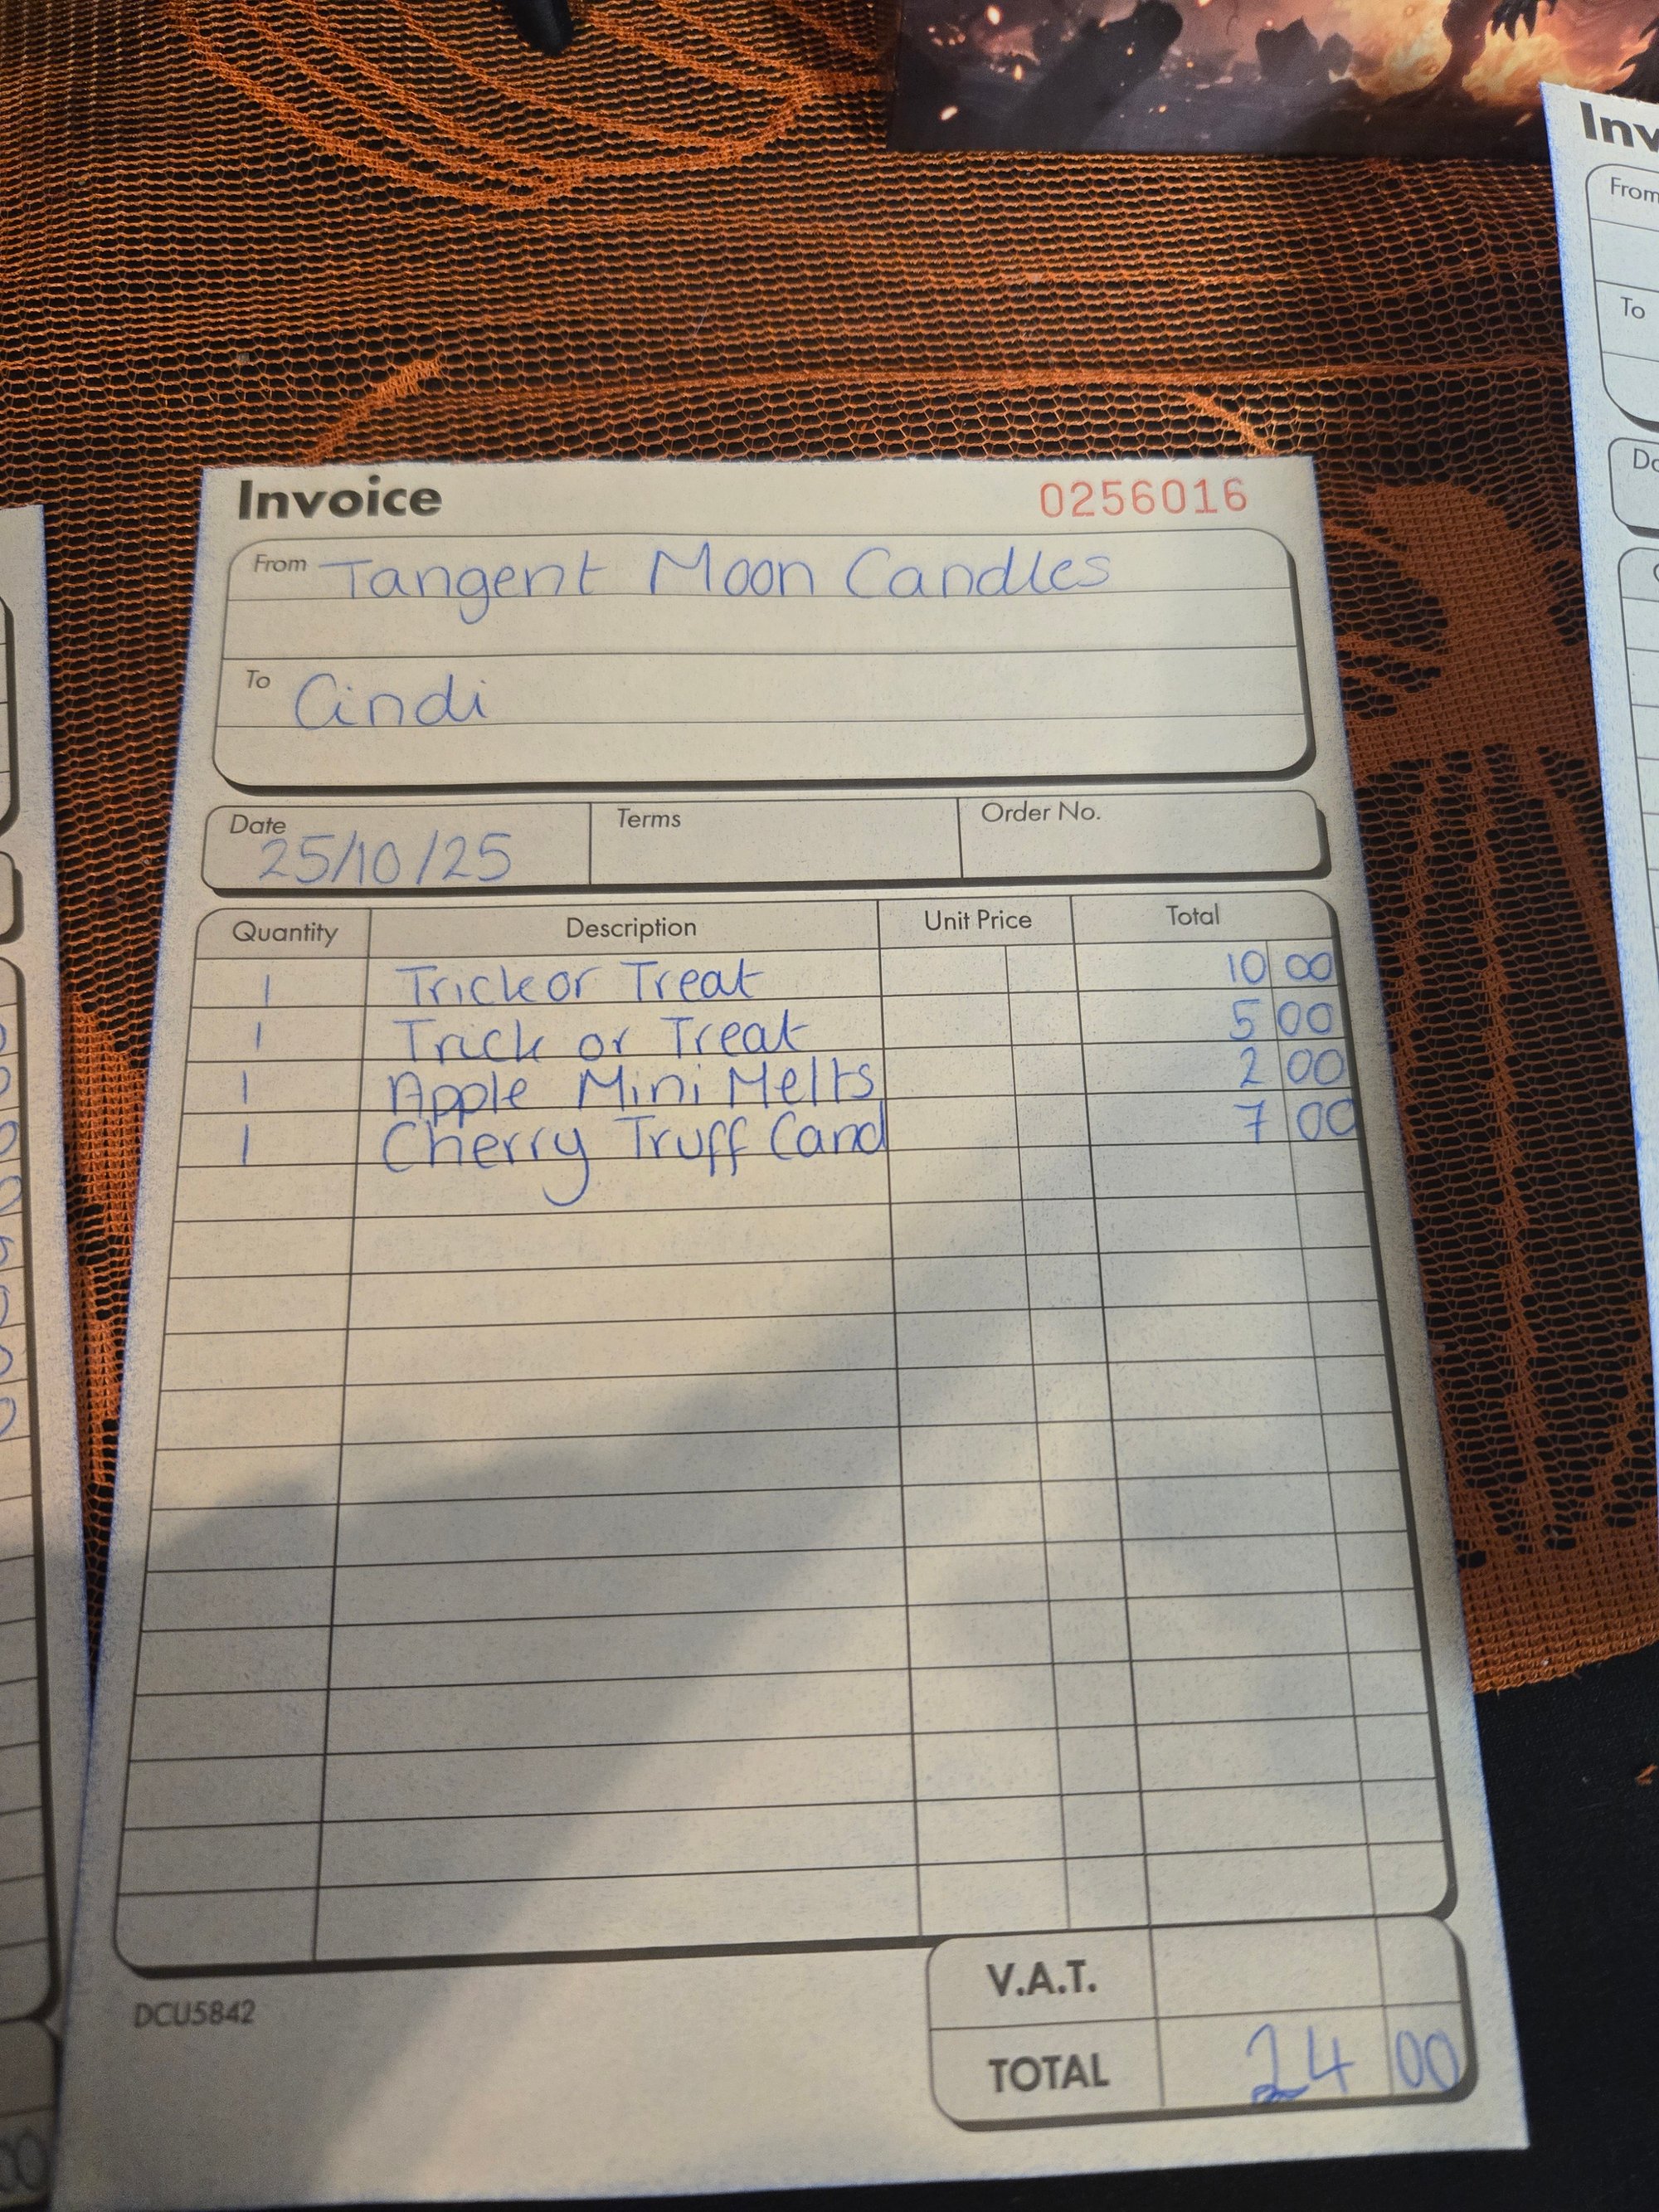 Invoice 0256016
From Tangent Moon Candles
To Cindi
Date 25/10/25 Terms Order No.
Quantity Description Unit Price Total
1 Trick or Treat 10 00
1 Trick or Treat 5 00
1 Apple Mini Melts 2 00
1 Cherry Truff Cand 7 00
V.A.T.
DCU5842
TOTAL 24 00
Inv
From
To